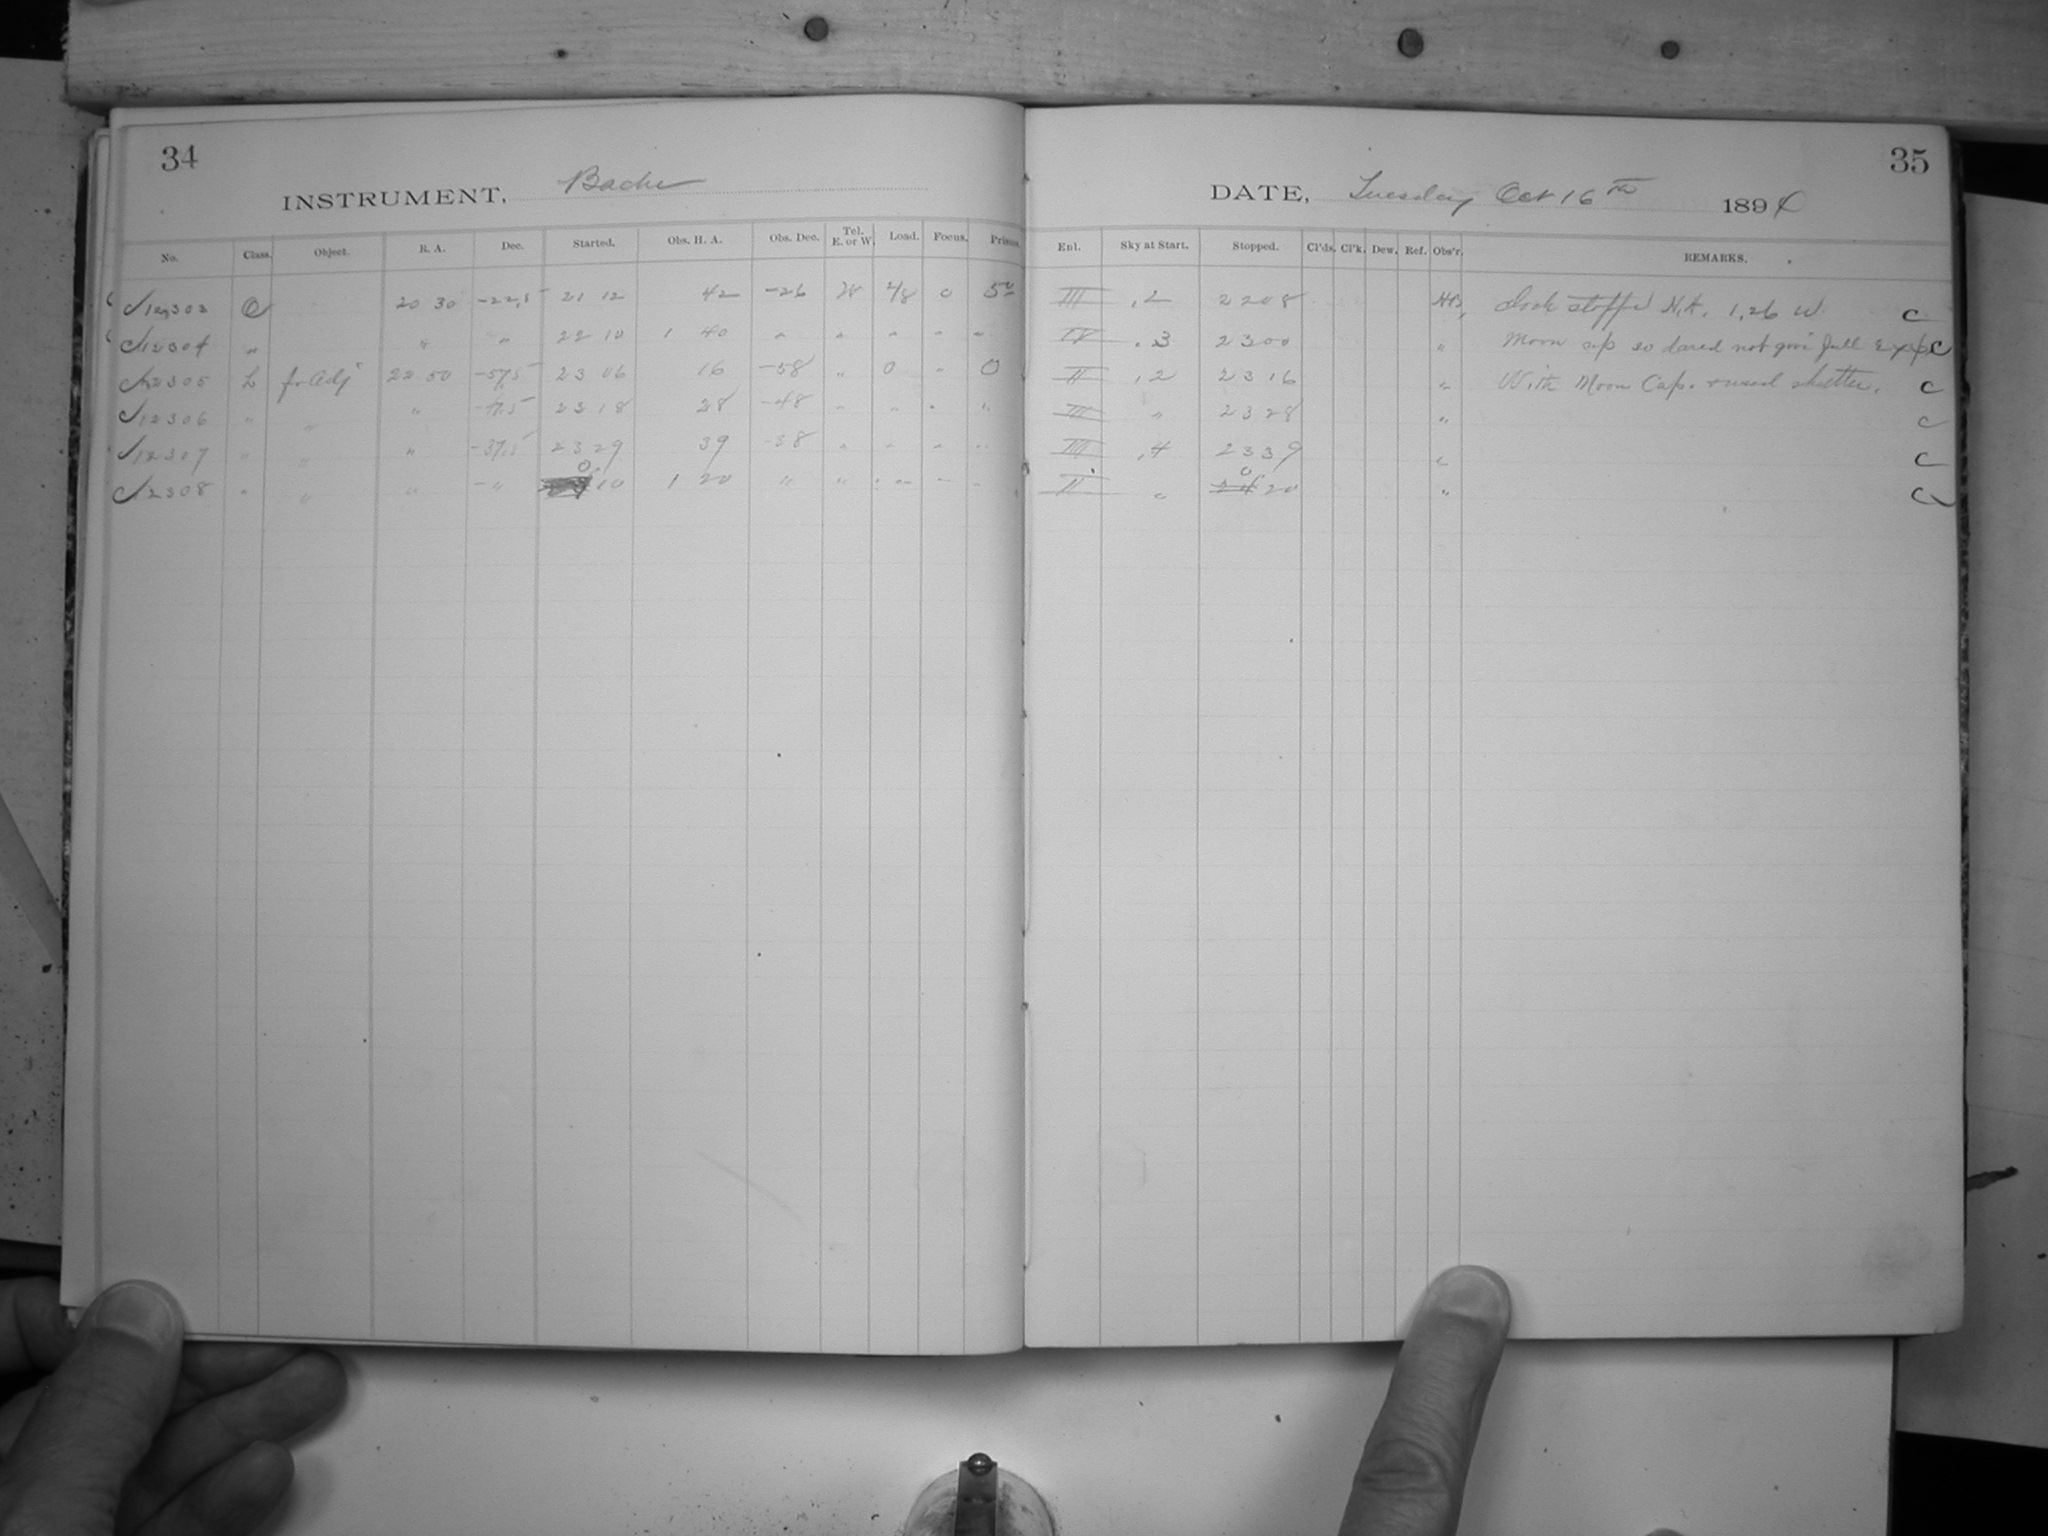 34
INSTRUMENT, Bache
No. Class. Object. R. A. Dec. Started. Obs. H. A. Obs. Dec. Tel. E. or W. Load. Focus. Prisms.
12303 20 30 -22,5 21 12 42 -26 0
12304 " " " 22 10 1 40 " " " " "
12305 L for Adj 22 50 -57,5 23 06 16 -58 " 0 " 0
12306 " " " 23 18 28 -48 " " " "
12307 " " " -37,5 23 29 39 -38 " " " "
12308 " " " - " 0 10 1 20 " " " " "
35
DATE, Tuesday Oct 16th 1894
Enl. Sky at Start. Stopped. Cl'ds. Cl'k. Dew. Ref. Obs'r. REMARKS.
III ,2 22 08 Clock stopped H.A. 1,26 W. C
IV .3 23 00 " Moon up so dared not give full C
II ,2 23 16 " With Moon Cap. used shutter. C
III " 23 28 " C
III ,4 23 39 " C
II " 0 20 " C